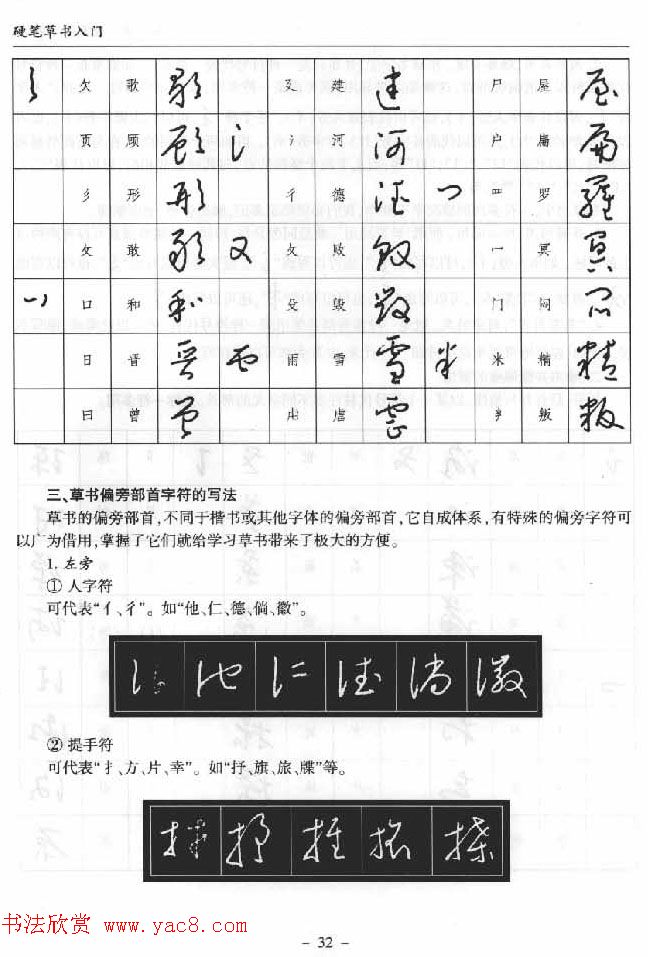 硬笔草书入门
欠 歌 歌 廴 建 建 尸 屋 屋
页 顾 顾 氵 河 河 户 扁 扁
彡 形 形 彳 德 德 罒 罗 羅
攵 敢 敢 攵 殳 冖 冥 冥
口 和 和 殳 门 闷 闷
日 晋 晋 雨 雪 雪 米 精 精
曰 曾 曾 虍 虐 虐 叛
三、草书偏旁部首字符的写法
草书的偏旁部首,不同于楷书或其他字体的偏旁部首,它自成体系,有特殊的偏旁字符可
以广为借用,掌握了它们就给学习草书带来了极大的方便。
1. 左旁
① 人字符
可代表“亻、彳”。如“他、仁、德、倘、徽”。
他 仁 德 倘 徽
② 提手符
可代表“扌、方、片、幸”。如“抒、旗、旅、牒”等。
书法欣赏 www.yac8.com
- 32 -